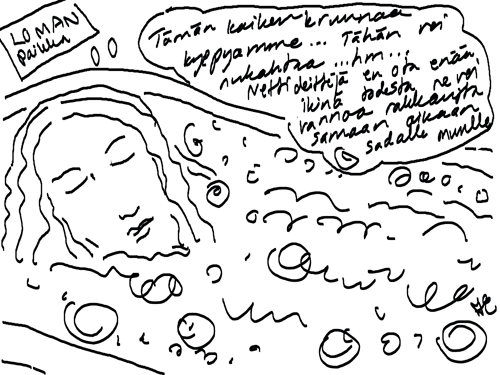 LOMAN
päikkä
Tämän kaiken kruunaa
kylpyamme... Tähän voi
nukahtaa ...hm...
Nettideittejä en ota enään
ikinä todesta ne voi
vannoa rakkautta
samaan aikaan
sadalle muulle